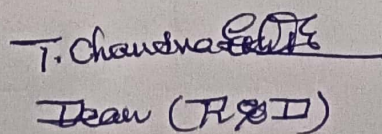 T. Chandra
Dean (R&D)